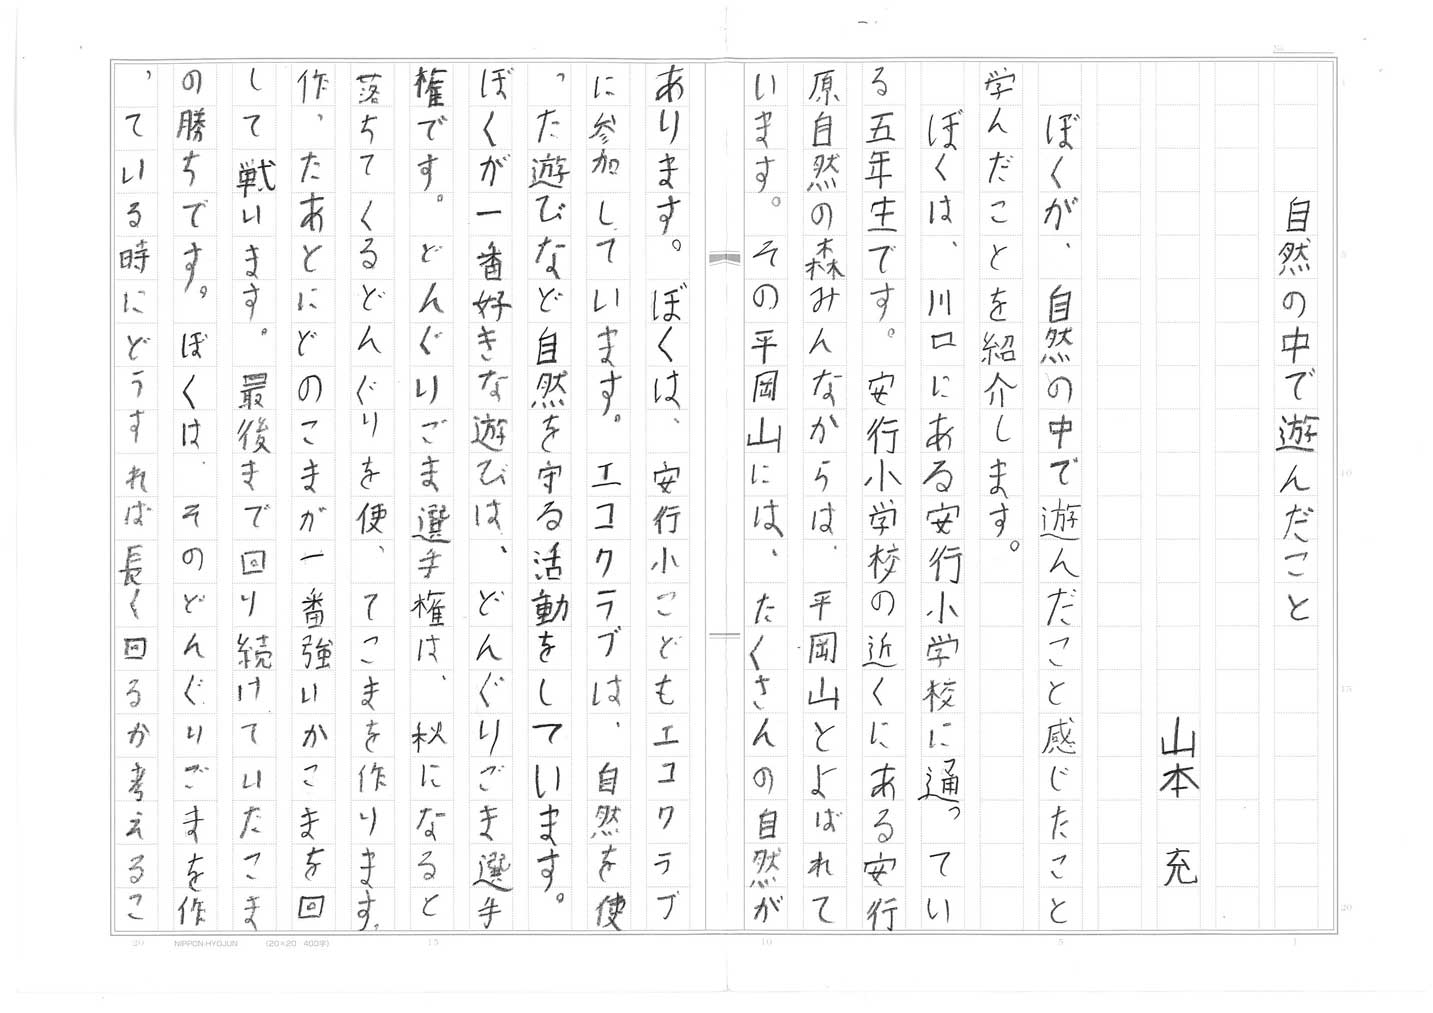 自然の中で遊んだこと
山本 充
ぼくが、自然の中で遊んだこと感じたこと
学んだことを紹介します。
ぼくは、川口にある安行小学校に通ってい
る五年生です。安行小学校の近くにある安行
原自然の森みんなからは、平岡山とよばれて
います。その平岡山には、たくさんの自然が
あります。ぼくは、安行小こどもエコクラブ
に参加しています。エコクラブは、自然を使
った遊びなど自然を守る活動をしています。
ぼくが一番好きな遊びは、どんぐりごま選手
権です。どんぐりごま選手権は、秋になると
落ちてくるどんぐりを使ってこまを作ります。
作ったあとにどのこまが一番強いかこまを回
して戦います。最後まで回り続けていたこま
の勝ちです。ぼくは、そのどんぐりごまを作
っている時にどうすれば長く回るか考えるこ
20
NIPPON-HYOJUN (20×20 400字)
15
10
5
1
1
5
10
15
20